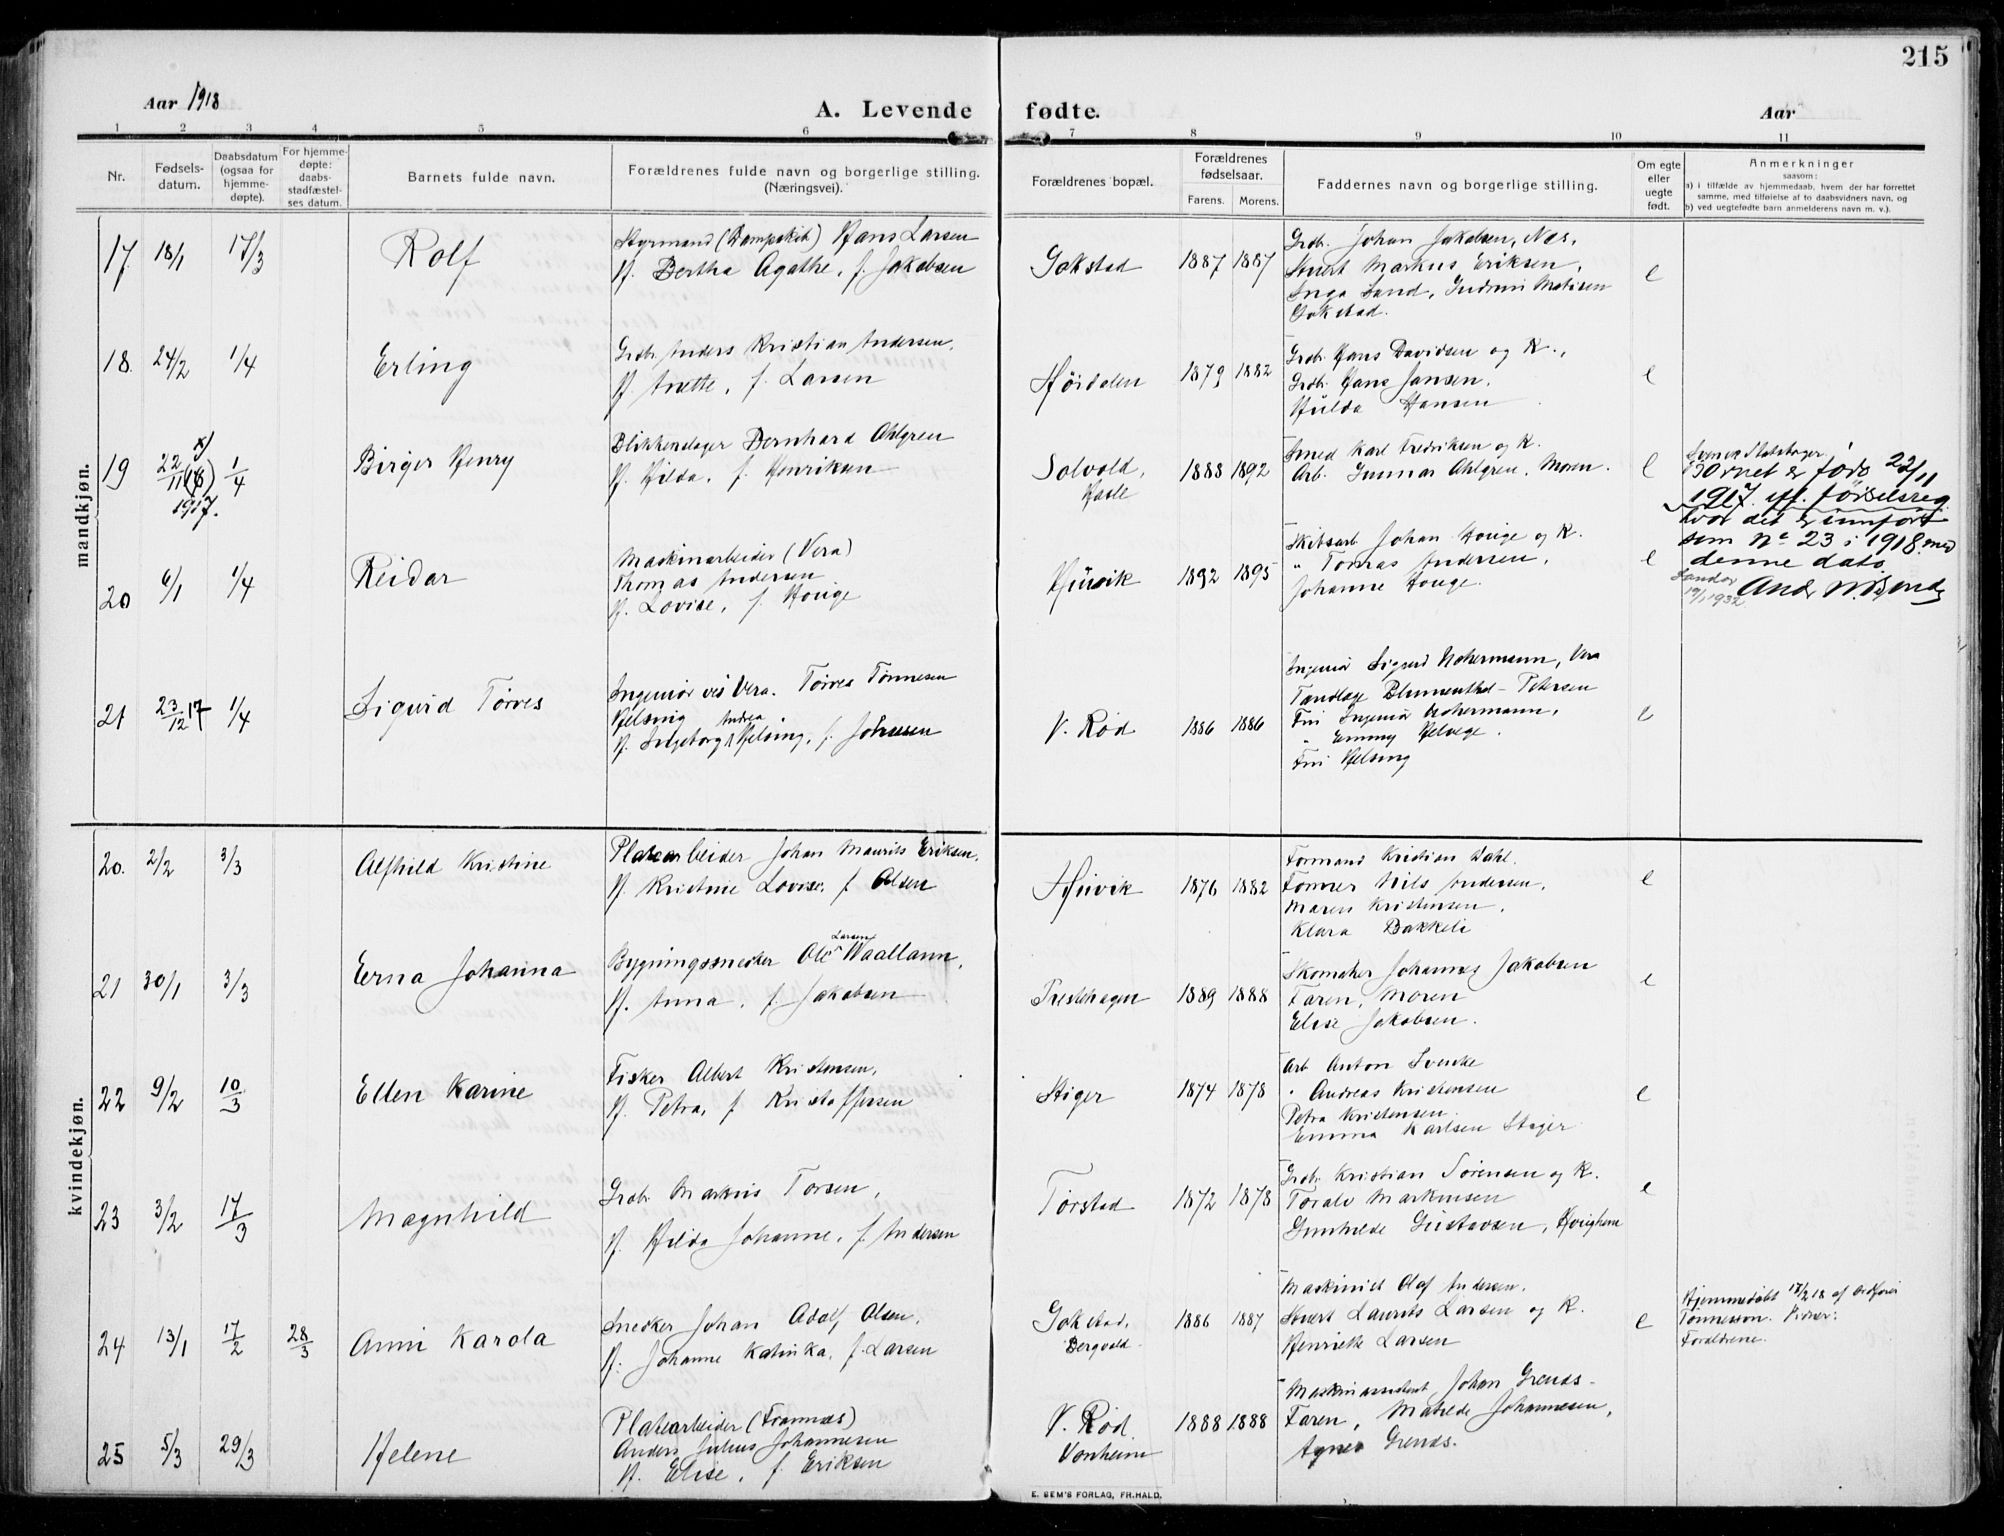 215
Aar 1918
A. Levende fødte.
Aar
1 2 3 4 5 6 7 8 9 10 11
Nr.
Fødsels-
datum.
Daabsdatum
(ogsaa for
hjemme-
døpte).
For hjemme-
døpte:
daabs-
stadfæstel-
ses datum.
Barnets fulde navn.
Forældrenes fulde navn og borgerlige stilling.
(Næringsvei).
Forældrenes bopæl.
Forældrenes
fødselsaar.
Farens. Morens.
Faddernes navn og borgerlige stilling.
Om egte
eller
uegte
født.
Anmerkninger
saasom:
a) i tilfælde av hjemmedaab, hvem der har forrettet
samme, med tilføielse af to daabsvidners navn, og
b) ved uegtefødte barn anmelderens navn m. v.).
mandkjøn.
17. 18/1 17/3 Rolf
Styrmand (Dampskib) Hans Larsen
H. Bertha Agathe, f. Jakobsen
Gokstad 1887 1887
Grdb. Johan Jakobsen, Nes,
Snert Markus Eriksen,
Inga Sand, Gudrun Matisen
Gokstad.
e
18. 24/2 1/4 Erling
Grdbr. Anders Kristian Andersen,
H. Anette, f. Larsen
Hørdalen 1879 1882
Grdb. Hans Davidsen og K.,
Grdb. Hans Jansen,
Hulda Hansen
e
19 x) 22/11 (18) 1917. 1/4 Birger Henry
Blikkenslager Bernhard Ahlgren
H. Hilda, f. Henriksen
Solvold, Hasle 1888 1892
Smed Karl Fredriksen og K.
Arb. Gunnar Ahlgren, Moren.
e
Svensk Statsborger.
Barnet er født 22/11
1917. iflg. fødselsreg.
hvor det er innført
som No 23 i 1918 med
denne dato
Sandar
19/1 1932.
20 6/1 1/4 Reidar
Maskinarbeider (Vera)
Thomas Andersen
H. Lovise, f. Houge
Hjuvik 1892 1895
Skibsarb. Johan Houge og K.
" Tomas Andersen,
Johanne Houge.
e
21 23/12 17 1/4 Sigurd Tørres
Ingeniør ved Vera. Tørres Tønnesen
Helsing Andrea
H. Ingeborg Helsing, f. Johnsen
V. Rød 1886 1886
Ingeniør Sigurd Uchermann, Vera
Tandlæge Blumenthal-Petersen
Fru Ingeniør Uchermann,
" Emmy Helvege.
Fru Helsing
e
kvindekjøn.
20. 2/2 3/3 Alfhild Kristine
Platearbeider Johan Maurits Eriksen,
H. Kristine Lovise, f. Olsen
Hjuvik 1876 1882
Formand Kristian Dahl.
Tømmer Nils Andersen,
Maren Kristensen,
Klara Bakkeli
e
21 30/1 3/3 Erna Johanna
Bygningssnedker Ole Larsen Waallann,
H. Anna, f. Jakobsen
Prestehagen 1889 1888
Skomaker Johannes Jakobsen
Faren, Moren
Elise Jakobsen.
e
22 9/2 10/3 Ellen Karine
Fisker Albert Kristensen,
H. Petra, f. Kristoffersen
Stiger 1874 1878
Arb Anton Svenke
" Andreas Kristensen
Petra Kristensen.
Emma Karlsen Stiger
e
23 3/2 17/3 Magnhild
Grdbr. Markus Torsen,
H. Hilda Johanne, f. Andersen
Torstad 1872 1878
Grdb. Kristian Sørensen og K.
Toralv Markussen
Gunhilde Gustavsen,
e
24 13/1 17/2 28/3 Anni Karola
Snedker Johan Adolf Olsen,
H. Johanne Katinka, f. Larsen
Gokstad, Bergvold 1886 1887
Maskinist Olaf Andersen.
Snert Laurits Larsen og K.
Henrikke Larsen
e
Hjemmedøbt 17/2 18 af Ordfører
Tønnesson. Vidner:
Foreldrene.
25 5/3 29/3 Helene
Platearbeider (Framnæs)
Anders Julius Johannesen
H. Elise, f. Eriksen
V. Rød. Vonheim 1888 1888
Maskinassistent Johan Grends-
Faren, Matilde Johannesen,
Agnes Grends.
E. SEM'S FORLAG, FR.HALD.